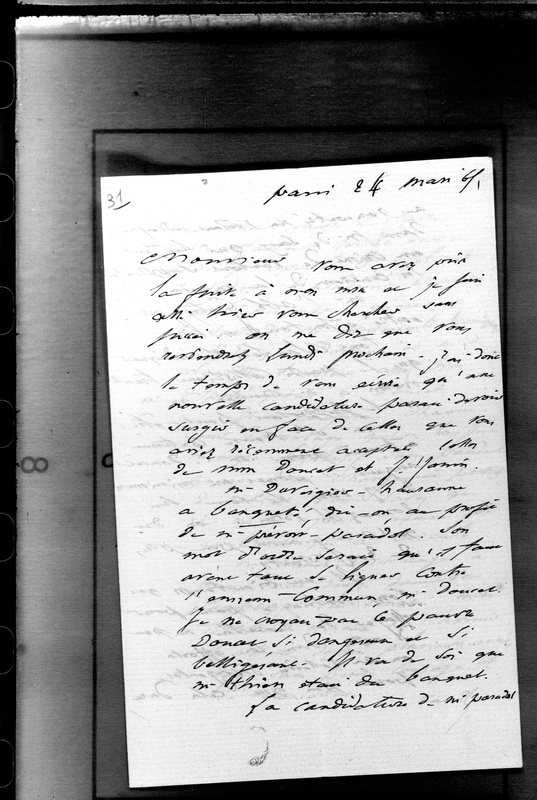 31
paris 24 mars 65,
Monsieur vous avez pris
la fuite à mon nez et je suis
allé hier vous chercher sans
succès. on me dit que vous
reviendrez lundi prochain - j'ai donc
le temps de vous écrire qu'une
nouvelle candidature parait devoir
surgir en face de celles que vous
aviez récemment acceptées celles
de mm Doucet et J. Janin.
mr Duvergier - hauranne
a banqueté dit-on au profit
de mr prévost-paradol. Son
mot d'ordre serait qu'il faut
avant tout se liguer contre
l'ennemi commun mr Doucet.
Je ne croyais pas ce pauvre
Doucet si dangereux et si
belligérant. Il va de soi que
mr thiers était du banquet.
La candidature de mr paradol